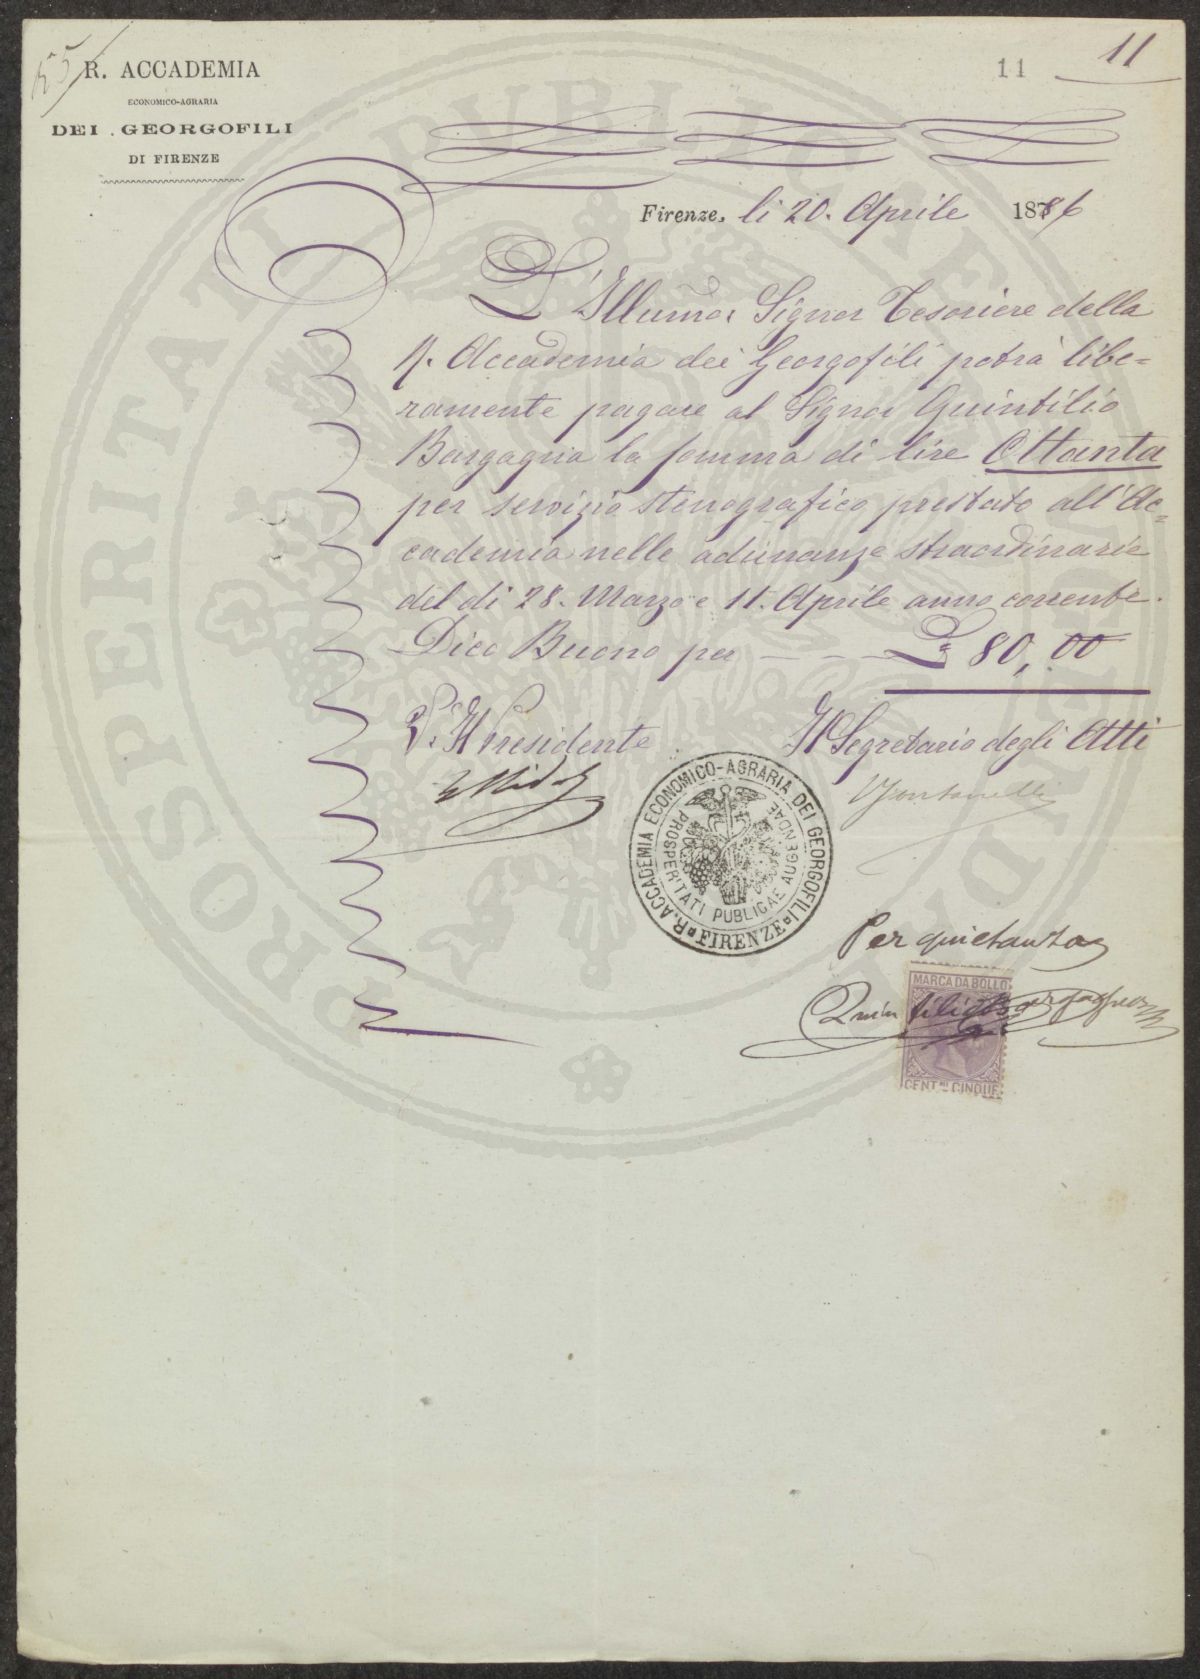 R. ACCADEMIA
ECONOMICO-AGRARIA
DEI GEORGOFILI
DI FIRENZE
11
11
Firenze, li 20. Aprile 1886
L'Illumo: Signor Tesoriere della
R. Accademia dei Georgofili potrà libe=
ramente pagare al Signor Quintilio
Bargagna la somma di lire Ottanta
per servizio stenografico prestato all'Ac=
cademia nelle adunanze straordinarie
del di 28. Marzo e 11. Aprile anno corrente.
Dico Buono per — — — L. 80,00
V. Il Presidente
Il Segretario degli Atti
R. ACCADEMIA ECONOMICO-AGRARIA DEI GEORGOFILI
FIRENZE
PROSPERITATI PUBLICAE AUGENDAE
Per quietanza
Quintilio Bargagna
MARCA DA BOLLO
CENT.MI CINQUE
PROSPERITATI PUBLICAE AUGENDAE